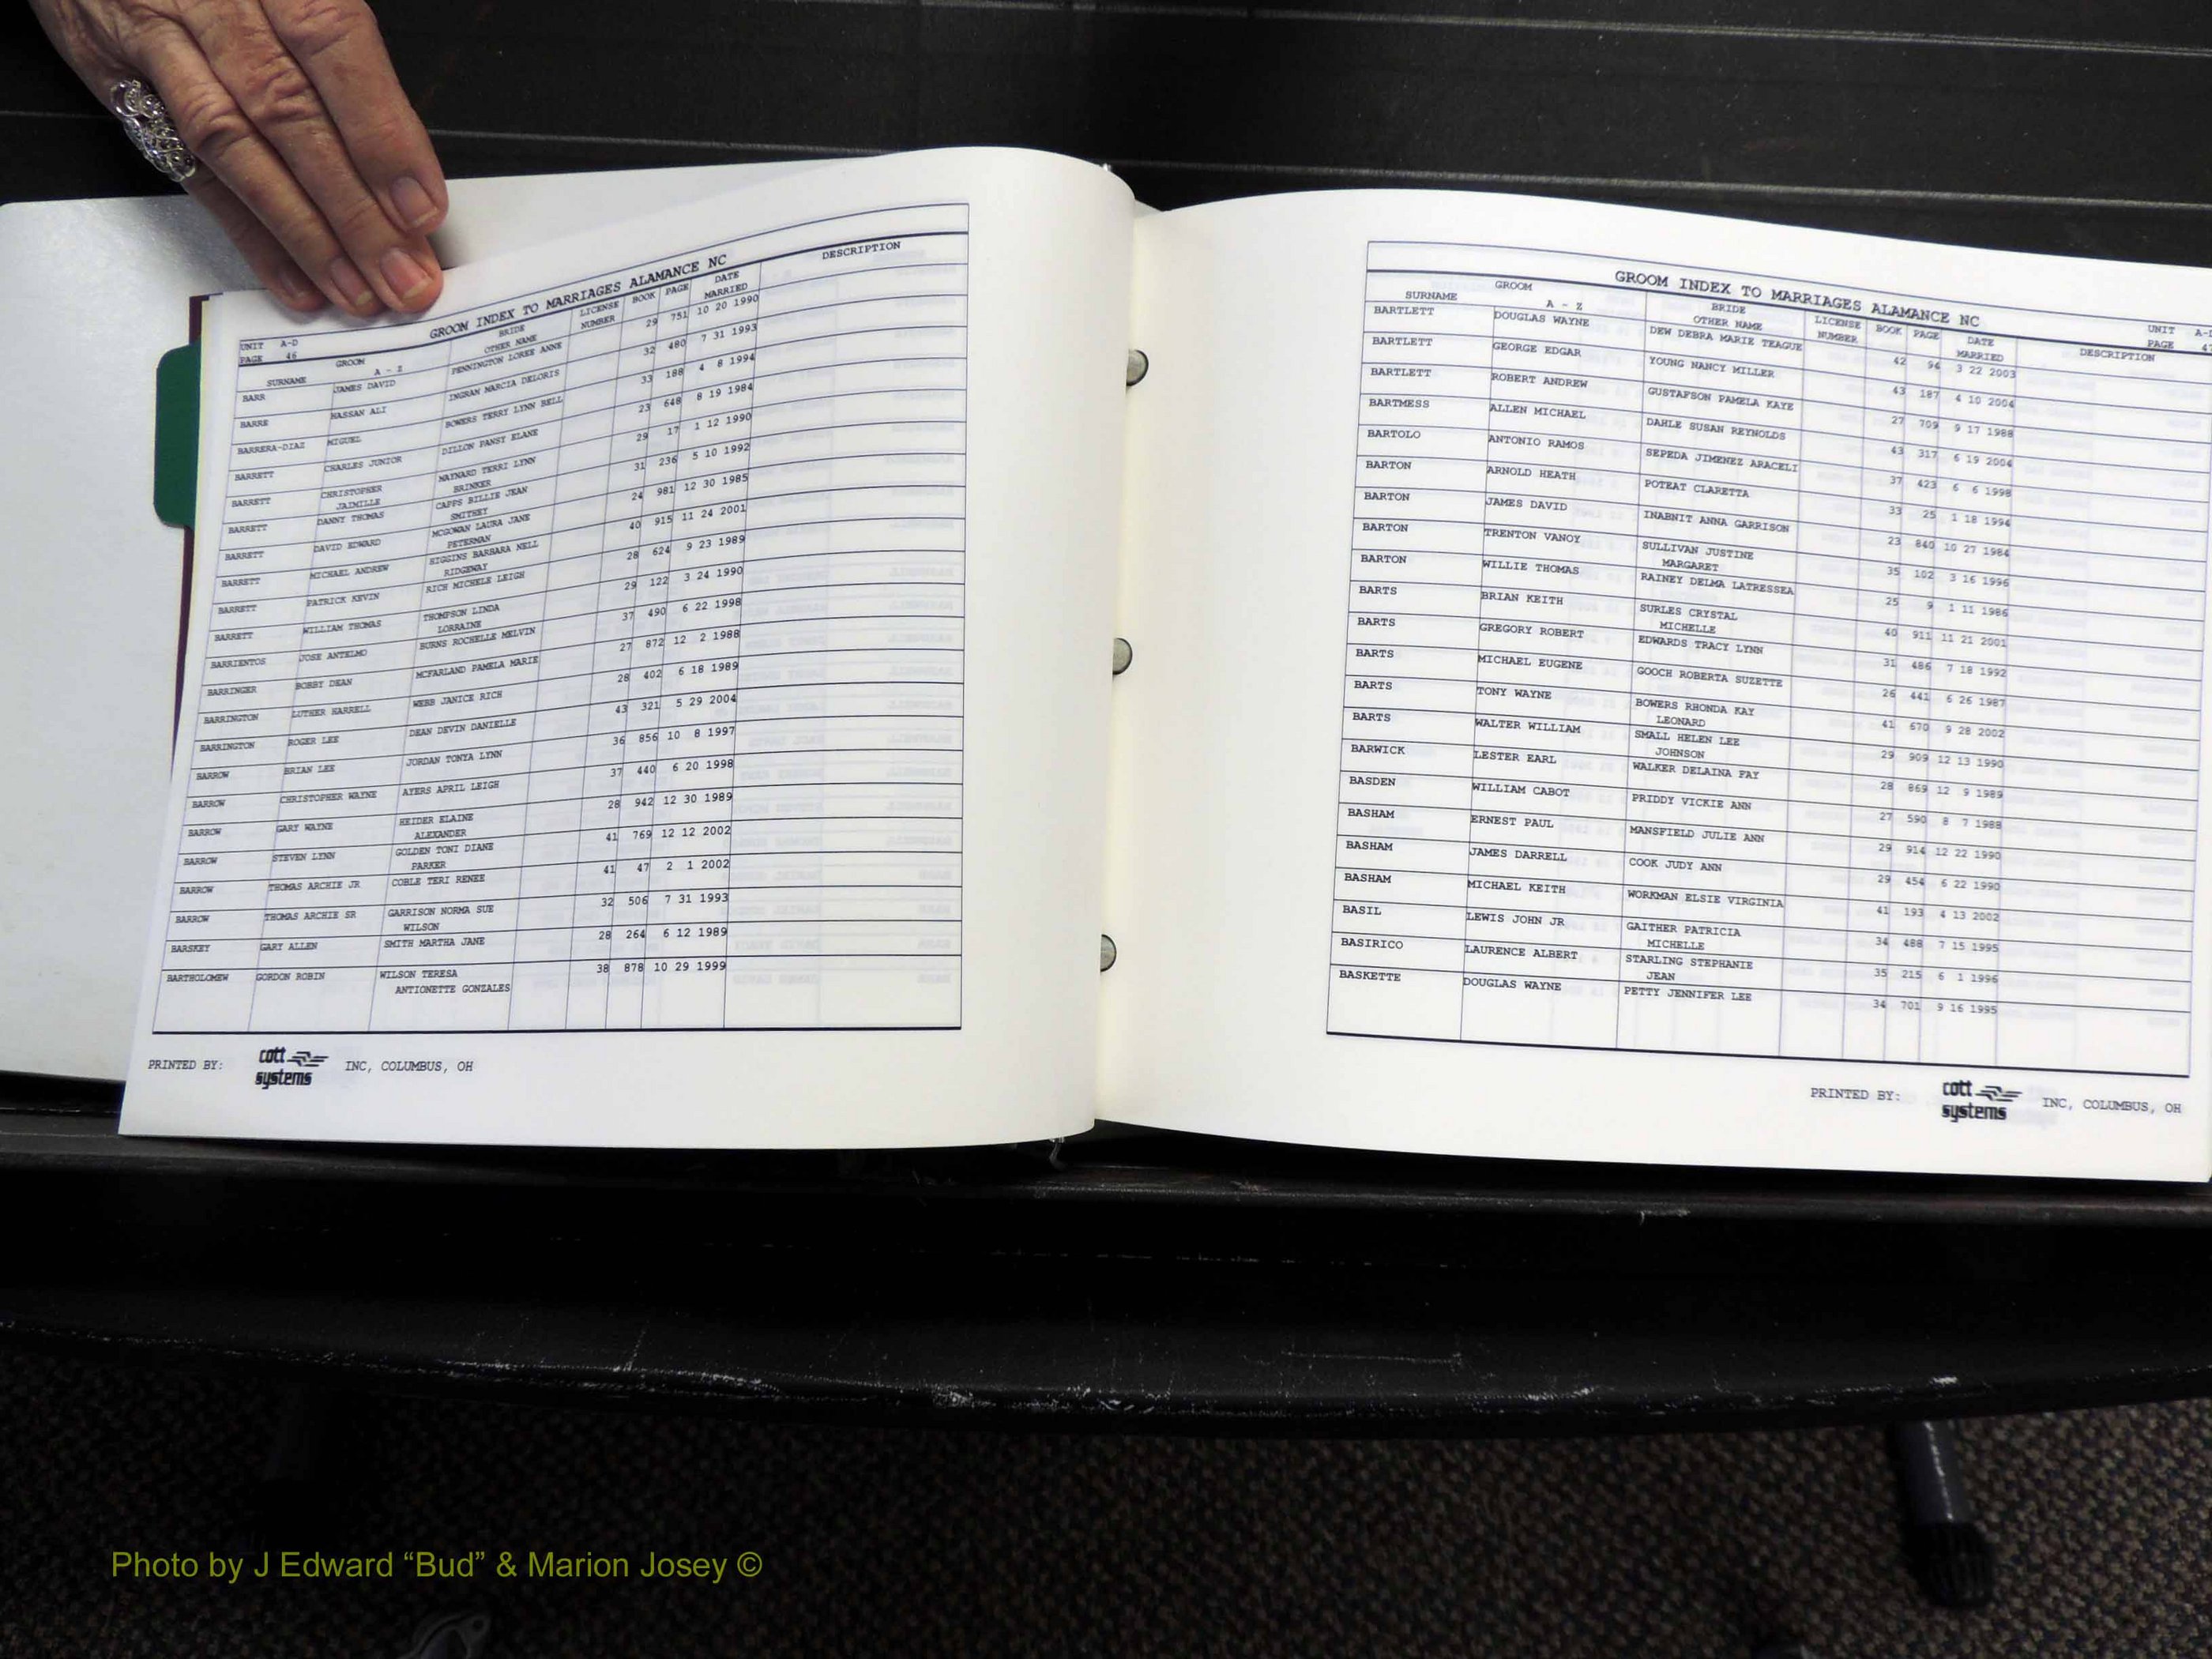 GROOM INDEX TO MARRIAGES ALAMANCE NC
UNIT A-D
PAGE 46
SURNAME GROOM A - Z BRIDE OTHER NAME LICENSE NUMBER BOOK PAGE DATE MARRIED DESCRIPTION
BARR JAMES DAVID PENNINGTON LOREE ANNE 29 751 10 20 1990
BARRE HASSAN ALI INGRAN MARCIA DELORIS 32 480 7 31 1993
BARRERA-DIAZ MIGUEL BOWERS TERRY LYNN BELL 33 188 4 8 1994
BARRETT CHARLES JUNIOR DILLON PANSY ELANE 23 648 8 19 1984
BARRETT CHRISTOPHER JAIMILLE MAYNARD TERRI LYNN BRINKER 29 17 1 12 1990
BARRETT DANNY THOMAS CAPPS BILLIE JEAN SMITHEY 31 236 5 10 1992
BARRETT DAVID EDWARD MCGOWAN LAURA JANE PETERMAN 24 981 12 30 1985
BARRETT MICHAEL ANDREW HIGGINS BARBARA NELL RIDGEWAY 40 915 11 24 2001
BARRETT PATRICK KEVIN RICH MICHELE LEIGH 28 624 9 23 1989
BARRETT WILLIAM THOMAS THOMPSON LINDA LORRAINE 29 122 3 24 1990
BARRIENTOS JOSE ANTELMO BURNS ROCHELLE MELVIN 37 490 6 22 1998
BARRINGER BOBBY DEAN MCFARLAND PAMELA MARIE 27 872 12 2 1988
BARRINGTON LUTHER HARRELL WEBB JANICE RICH 28 402 6 18 1989
BARRINGTON ROGER LEE DEAN DEVIN DANIELLE 43 321 5 29 2004
BARROW BRIAN LEE JORDAN TONYA LYNN 36 856 10 8 1997
BARROW CHRISTOPHER WAYNE AYERS APRIL LEIGH 37 440 6 20 1998
BARROW GARY WAYNE HEIDER ELAINE ALEXANDER 28 942 12 30 1989
BARROW STEVEN LYNN GOLDEN TONI DIANE PARKER 41 769 12 12 2002
BARROW THOMAS ARCHIE JR COBLE TERI RENEE 41 47 2 1 2002
BARROW THOMAS ARCHIE SR GARRISON NORMA SUE WILSON 32 506 7 31 1993
BARSKEY GARY ALLEN SMITH MARTHA JANE 28 264 6 12 1989
BARTHOLOMEW GORDON ROBIN WILSON TERESA ANTIONETTE GONZALES 38 878 10 29 1999
PRINTED BY: cott systems INC, COLUMBUS, OH
GROOM INDEX TO MARRIAGES ALAMANCE NC
UNIT
PAGE
SURNAME GROOM A - Z BRIDE OTHER NAME LICENSE NUMBER BOOK PAGE DATE MARRIED DESCRIPTION
BARTLETT DOUGLAS WAYNE DEW DEBRA MARIE TEAGUE 42 94 3 22 2003
BARTLETT GEORGE EDGAR YOUNG NANCY MILLER 43 187 4 10 2004
BARTLETT ROBERT ANDREW GUSTAFSON PAMELA KAYE 27 709 9 17 1988
BARTMESS ALLEN MICHAEL DAHLE SUSAN REYNOLDS 43 317 6 19 2004
BARTOLO ANTONIO RAMOS SEPEDA JIMENEZ ARACELI 37 423 6 6 1998
BARTON ARNOLD HEATH POTEAT CLARETTA 33 25 1 18 1994
BARTON JAMES DAVID INABNIT ANNA GARRISON 23 840 10 27 1984
BARTON TRENTON VANOY SULLIVAN JUSTINE MARGARET 35 102 3 16 1996
BARTON WILLIE THOMAS RAINEY DELMA LATRESSEA 25 9 1 11 1986
BARTS BRIAN KEITH SURLES CRYSTAL MICHELLE 40 911 11 21 2001
BARTS GREGORY ROBERT EDWARDS TRACY LYNN 31 486 7 18 1992
BARTS MICHAEL EUGENE GOOCH ROBERTA SUZETTE 26 441 6 26 1987
BARTS TONY WAYNE BOWERS RHONDA KAY LEONARD 41 670 9 28 2002
BARTS WALTER WILLIAM SMALL HELEN LEE JOHNSON 29 909 12 13 1990
BARWICK LESTER EARL WALKER DELAINA FAY 28 869 12 9 1989
BASDEN WILLIAM CABOT PRIDDY VICKIE ANN 27 590 8 7 1988
BASHAM ERNEST PAUL MANSFIELD JULIE ANN 29 914 12 22 1990
BASHAM JAMES DARRELL COOK JUDY ANN 29 454 6 22 1990
BASHAM MICHAEL KEITH WORKMAN ELSIE VIRGINIA 41 193 4 13 2002
BASIL LEWIS JOHN JR GAITHER PATRICIA MICHELLE 34 488 7 15 1995
BASIRICO LAURENCE ALBERT STARLING STEPHANIE JEAN 35 215 6 1 1996
BASKETTE DOUGLAS WAYNE PETTY JENNIFER LEE 34 701 9 16 1995
PRINTED BY: cott systems INC, COLUMBUS, OH
Photo by J Edward “Bud” & Marion Josey ©